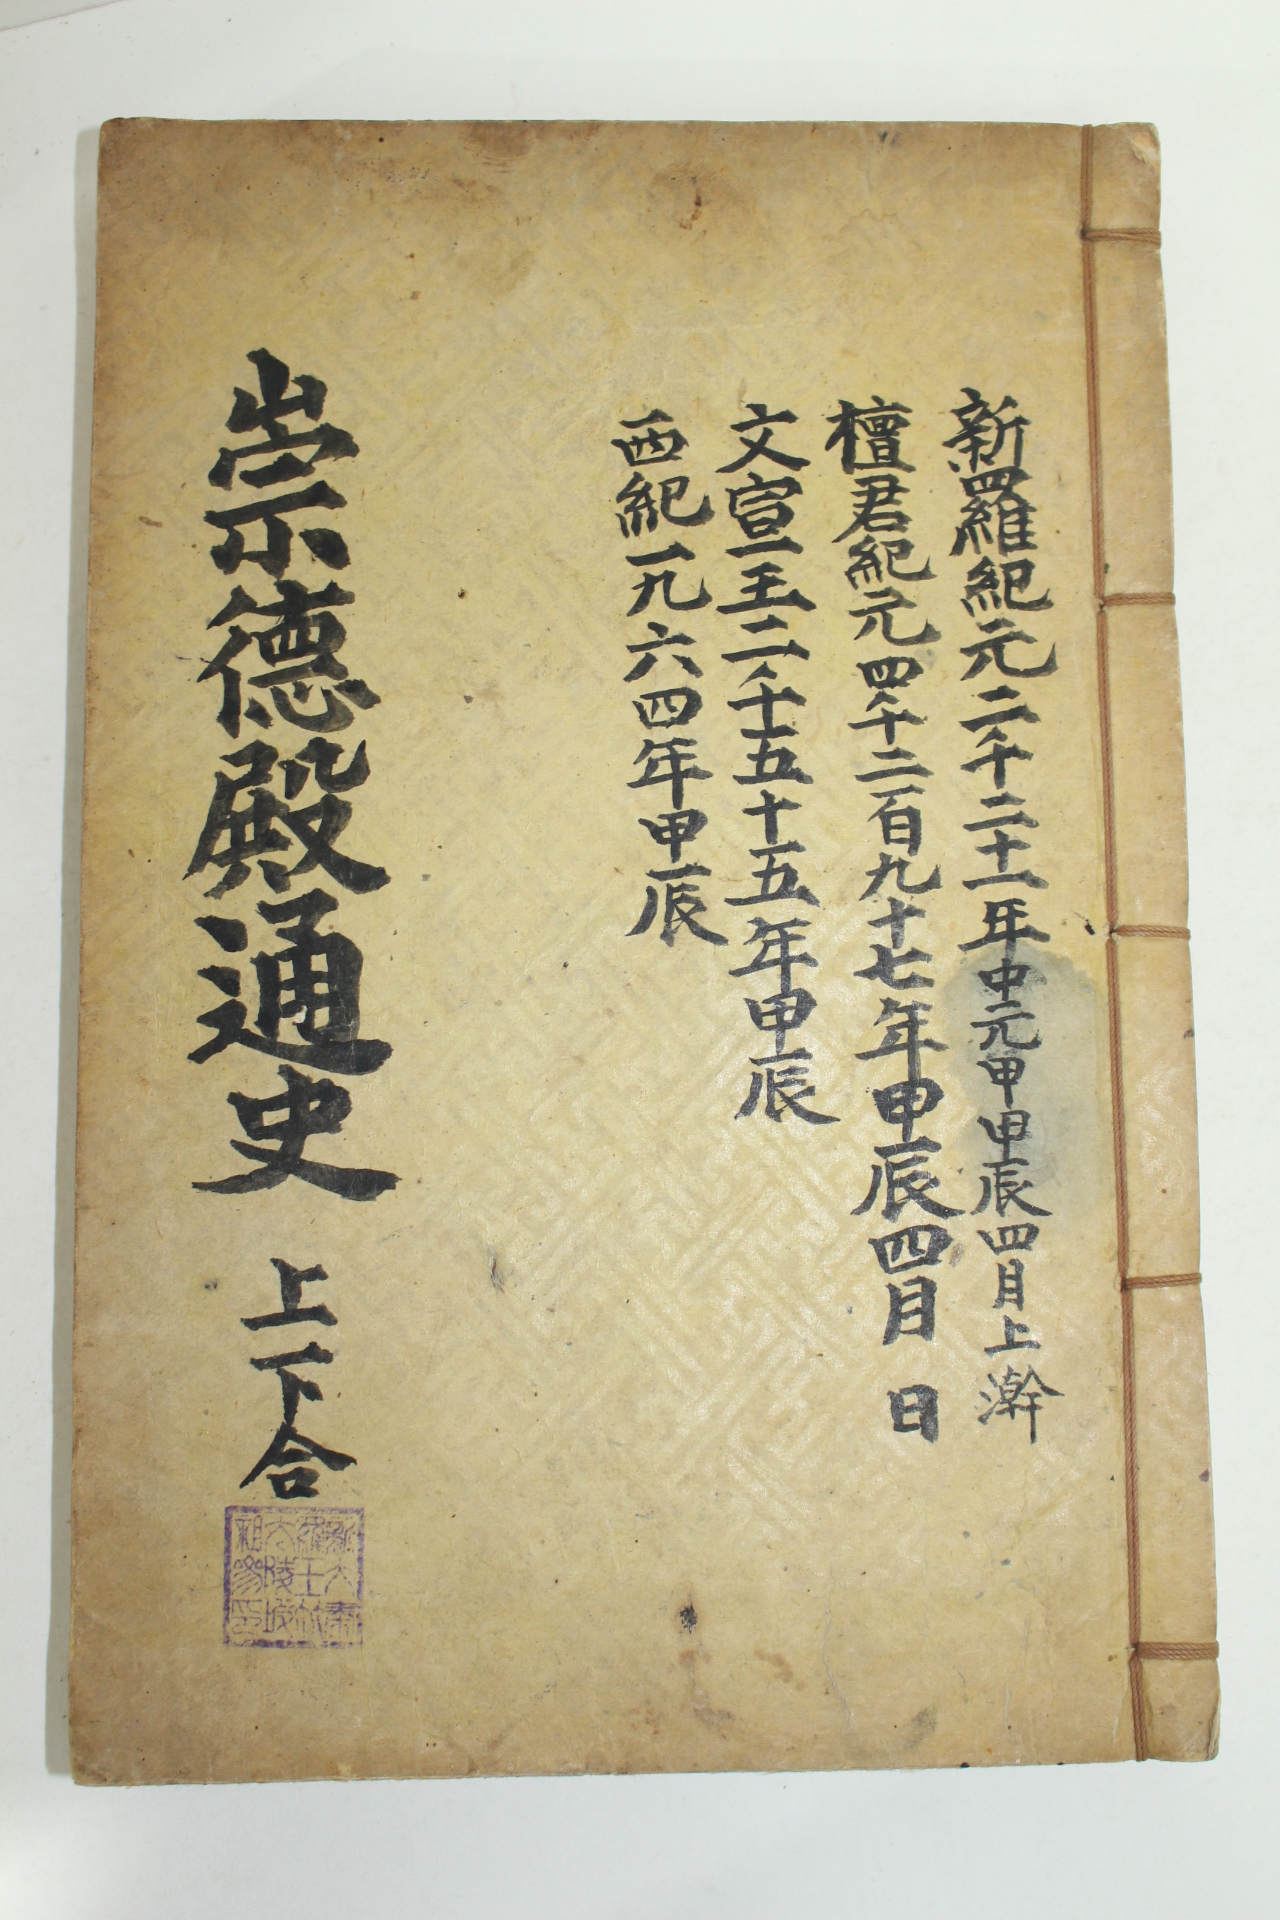 新羅紀元二千二十一年中元甲甲辰四月上澣
檀君紀元四千二百九十七年甲辰四月 日
文宣王二千五十五年甲辰
西紀一九六四年甲辰
崇德殿通史 上下合